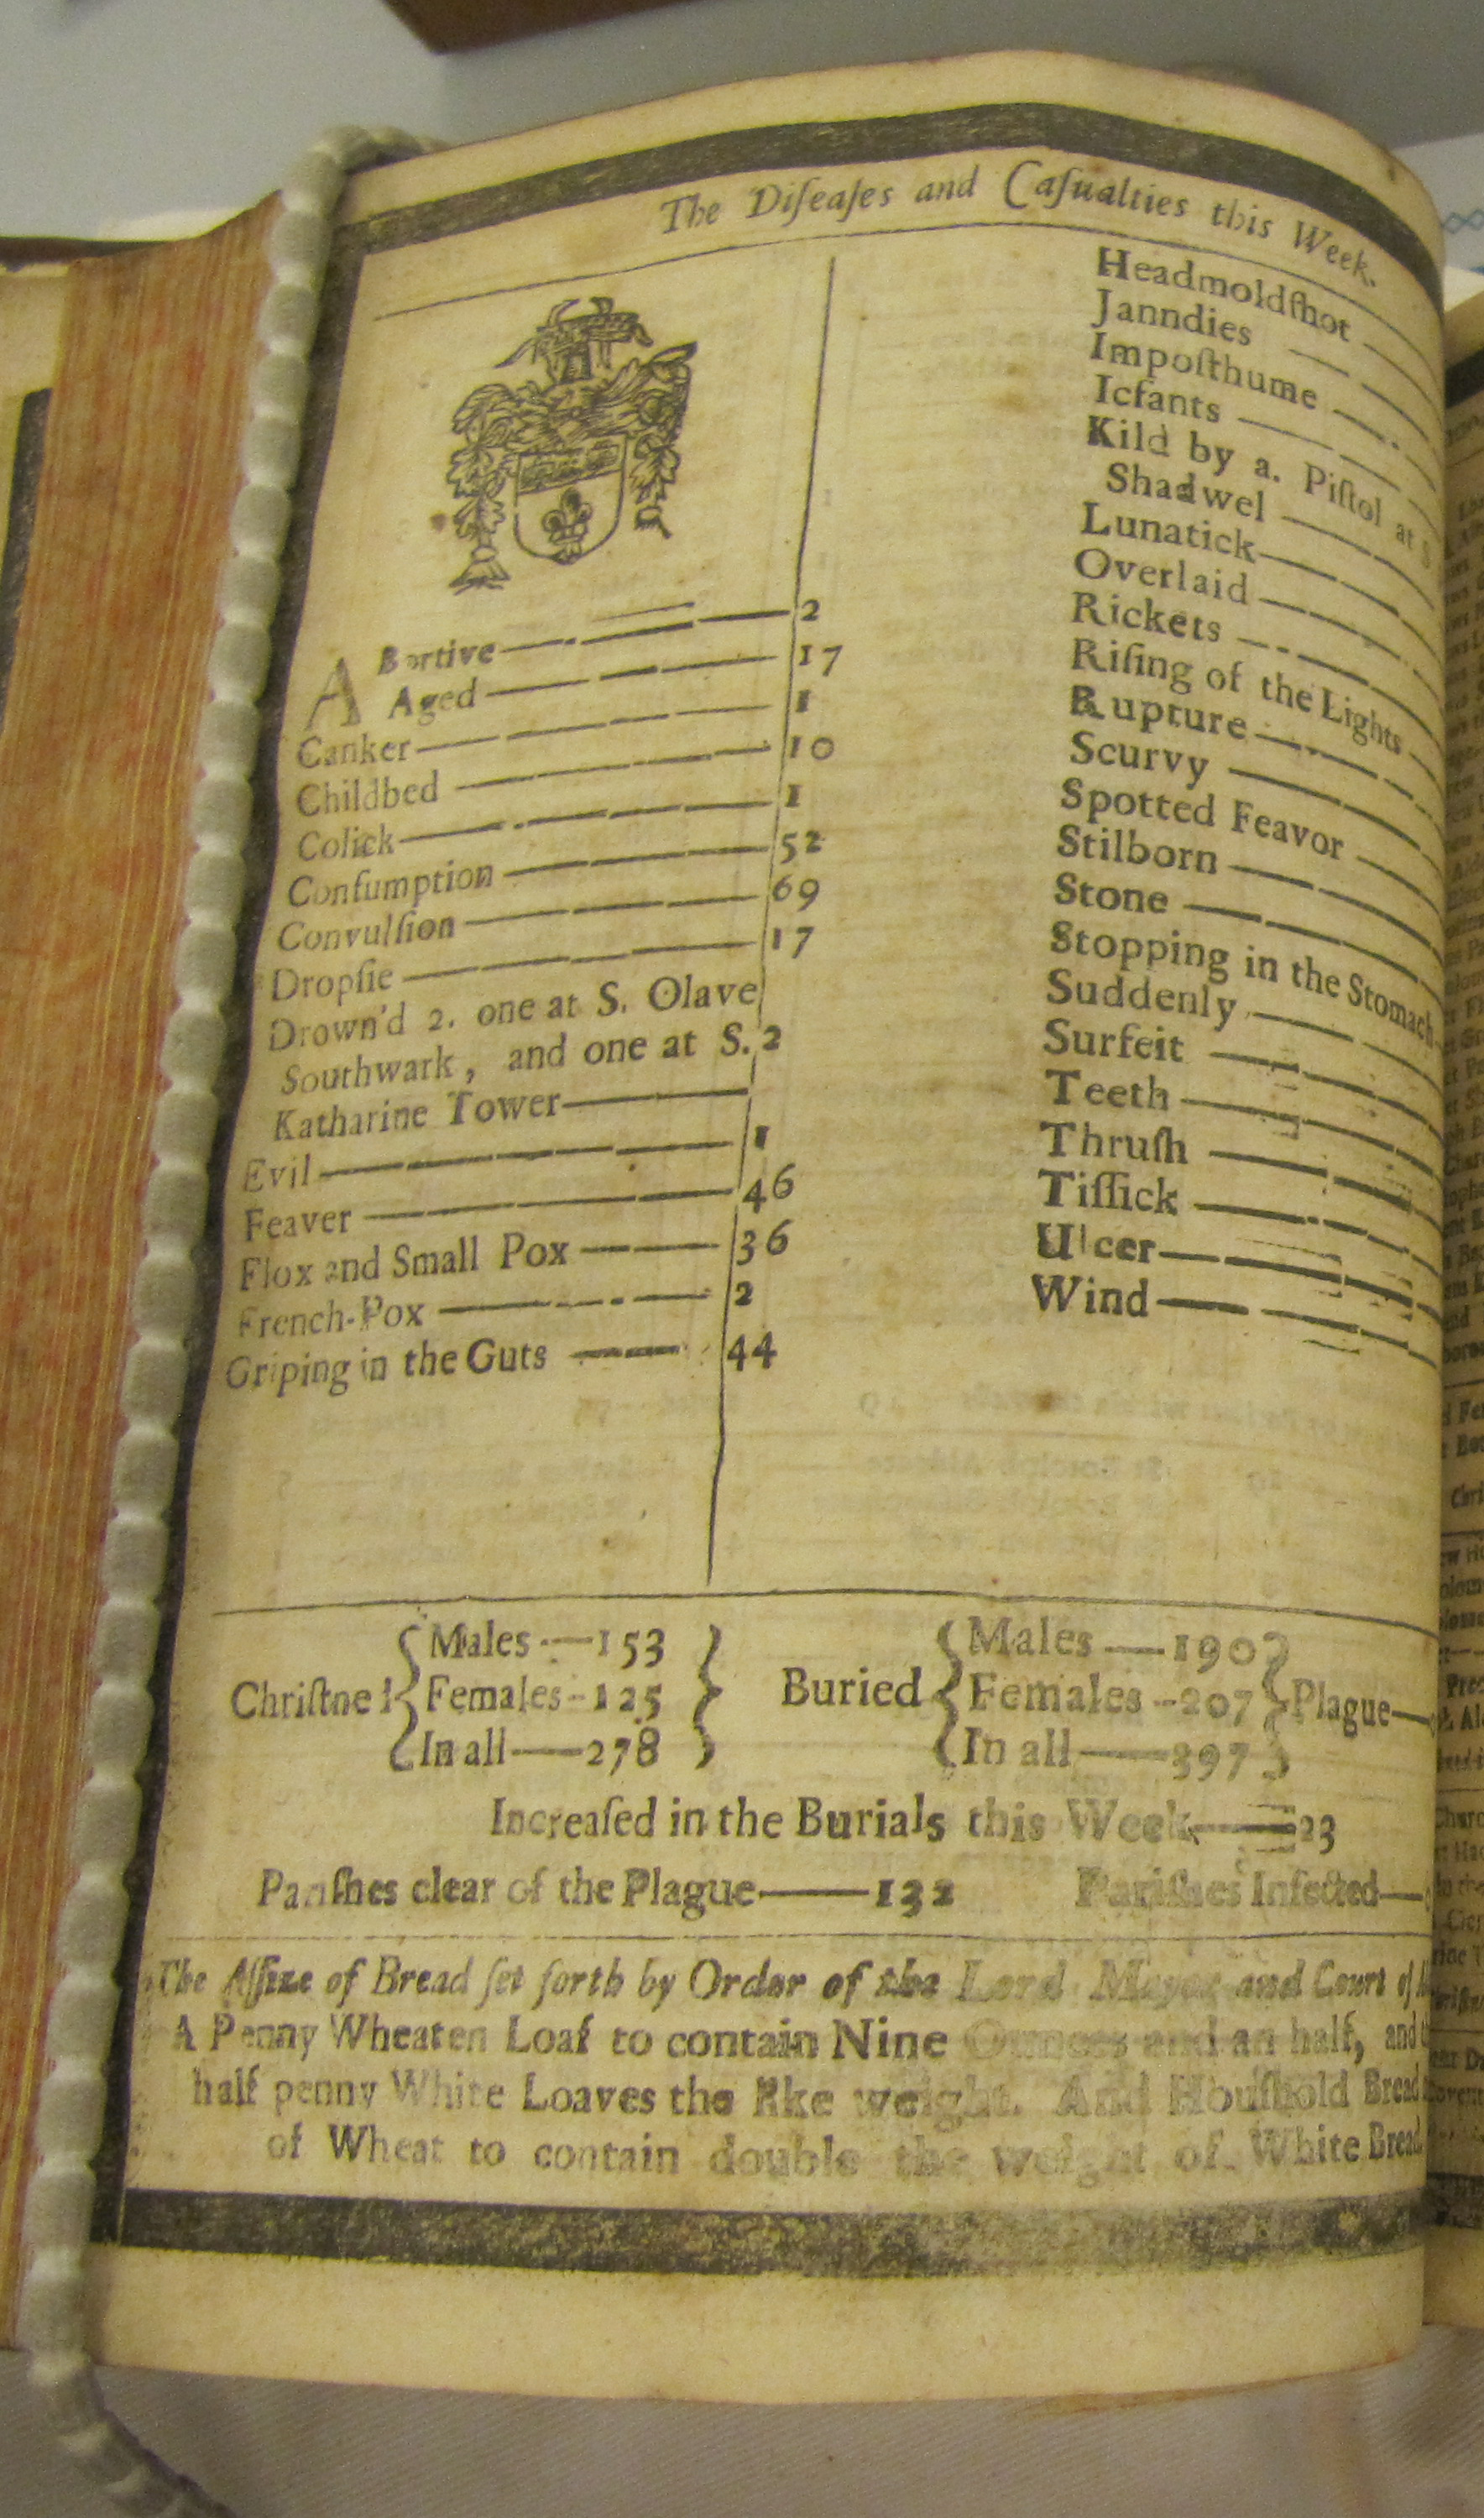 The Diſeaſes and Caſualties this Week.
ABortive 2
Aged 17
Canker 1
Childbed 10
Colick 1
Conſumption 52
Convulſion 69
Dropſie 17
Drown'd 2. one at S. Olave
Southwark, and one at S. 2
Katharine Tower
Evil 1
Feaver 46
Flox and Small Pox 36
French-Pox 2
Griping in the Guts 44
Headmoldſhot
Janndies
Impoſthume
Icfants
Kild by a. Piſtol at
Shadwel
Lunatick
Overlaid
Rickets
Riſing of the Lights
Rupture
Scurvy
Spotted Feavor
Stilborn
Stone
Stopping in the Stomach
Suddenly
Surfeit
Teeth
Thruſh
Tiſſick
Ulcer
Wind
Males 153
Chriſtned Females 125
In all 278
Males 190
Buried Females 207 Plague
In all 397
Increaſed in the Burials this Week 23
Pariſhes clear of the Plague 132 Pariſhes Infected
The Aſſize of Bread ſet forth by Order of the Lord Mayor and Court of
A Penny Wheaten Loaf to contain Nine Ounces and an half, and
half penny White Loaves the like weight. And Houſhold Bread
of Wheat to contain double the weight of White Bread